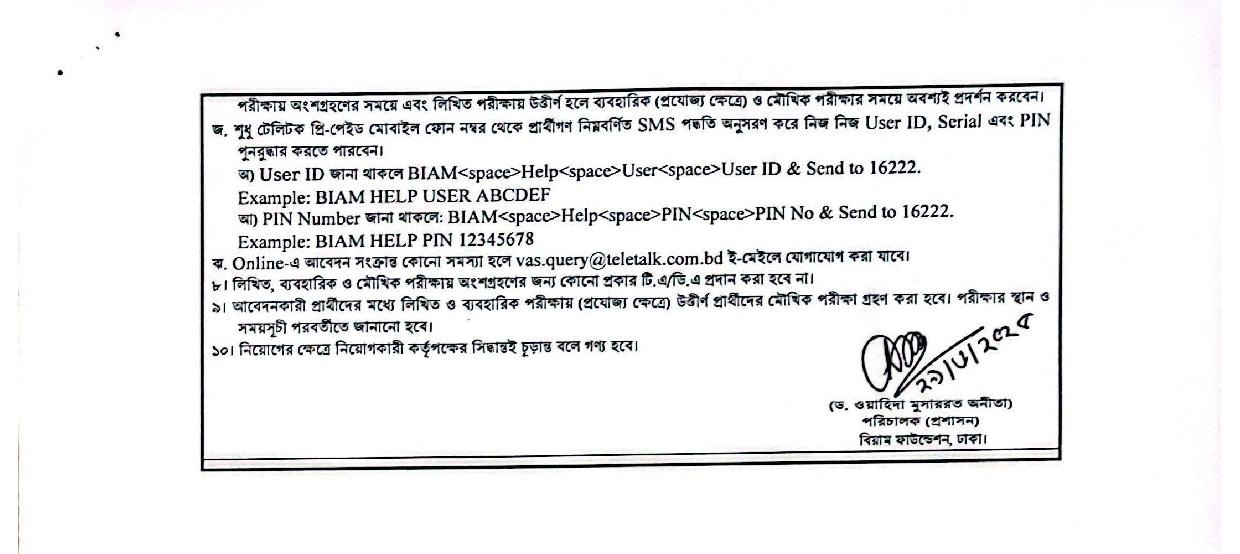 পরীক্ষায় অংশগ্রহণের সময়ে এবং লিখিত পরীক্ষায় উত্তীর্ণ হলে ব্যবহারিক (প্রযোজ্য ক্ষেত্রে) ও মৌখিক পরীক্ষার সময়ে অবশ্যই প্রদর্শন করবেন।
জ. শুধু টেলিটক প্রি-পেইড মোবাইল ফোন নম্বর থেকে প্রার্থীগণ নিম্নবর্ণিত SMS পদ্ধতি অনুসরণ করে নিজ নিজ User ID, Serial এবং PIN
পুনরুদ্ধার করতে পারবেন।
অ) User ID জানা থাকলে BIAM<space>Help<space>User<space>User ID & Send to 16222.
Example: BIAM HELP USER ABCDEF
আ) PIN Number জানা থাকলে: BIAM<space>Help<space>PIN<space>PIN No & Send to 16222.
Example: BIAM HELP PIN 12345678
ঝ. Online-এ আবেদন সংক্রান্ত কোনো সমস্যা হলে vas.query@teletalk.com.bd ই-মেইলে যোগাযোগ করা যাবে।
৮। লিখিত, ব্যবহারিক ও মৌখিক পরীক্ষায় অংশগ্রহণের জন্য কোনো প্রকার টি.এ/ডি.এ প্রদান করা হবে না।
৯। আবেদনকারী প্রার্থীদের মধ্যে লিখিত ও ব্যবহারিক পরীক্ষায় (প্রযোজ্য ক্ষেত্রে) উত্তীর্ণ প্রার্থীদের মৌখিক পরীক্ষা গ্রহণ করা হবে। পরীক্ষার স্থান ও
সময়সূচী পরবর্তীতে জানানো হবে।
১০। নিয়োগের ক্ষেত্রে নিয়োগকারী কর্তৃপক্ষের সিদ্ধান্তই চূড়ান্ত বলে গণ্য হবে।
(ড. ওয়াহিদা মুসাররত অনীতা)
পরিচালক (প্রশাসন)
বিয়াম ফাউন্ডেশন, ঢাকা।